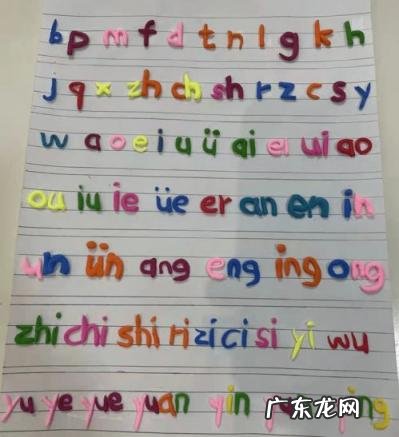 b p m f d t n l g k h
j q x zh ch sh r z c s y
w a o e i u ü ai ei ui ao
ou iu ie üe er an en in
un ün ang eng ing ong
zhi chi shi ri zi ci si yi wu
yu ye yue yuan yin ying
广东龙网